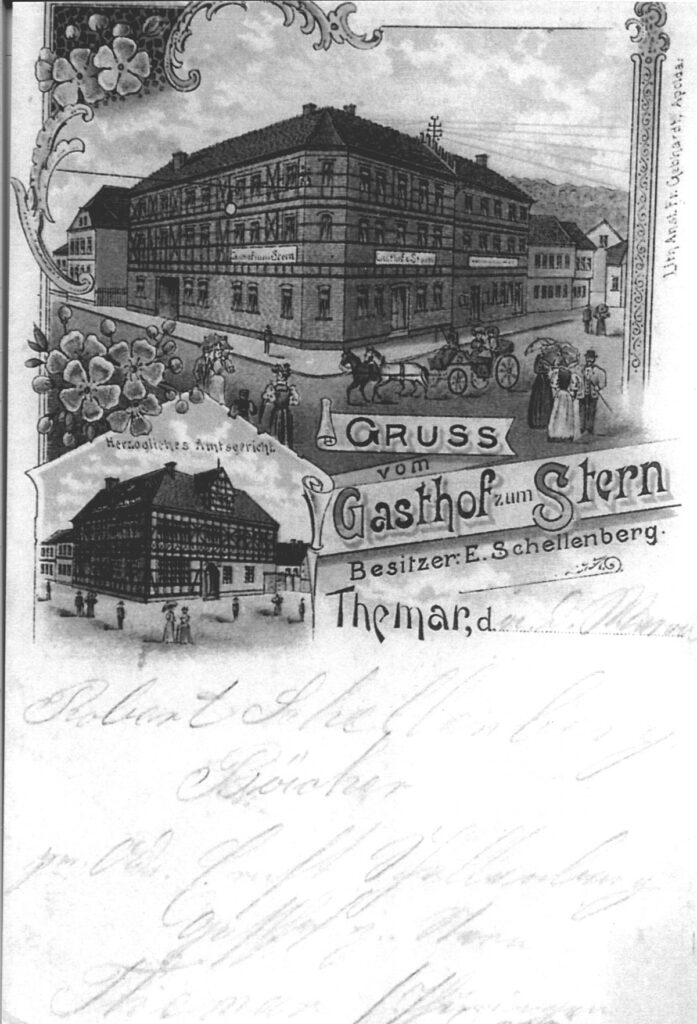 Gasthof zum Stern
Gasthof z. Stern
Lith. Anst. Fr. Gebhardt, Apolda.
Herzogliches Amtsgericht.
GRUSS
vom
Gasthof zum Stern
Besitzer: E. Schellenberg.
Themar, d.
Robert Schellenberg
pr. Adr. Ernst Schellenberg
Gasthof z. Stern
Themar